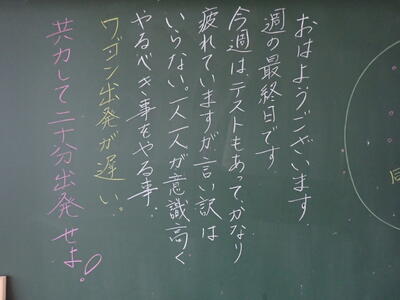 おはようございます。
週の最終日です
今週は、テストもあって、かなり
疲れていますが、言い訳は
いらない。一人一人が意識高く
やるべき事をやる事。
ワゴン出発が遅い。
共力して二十分出発せよ!